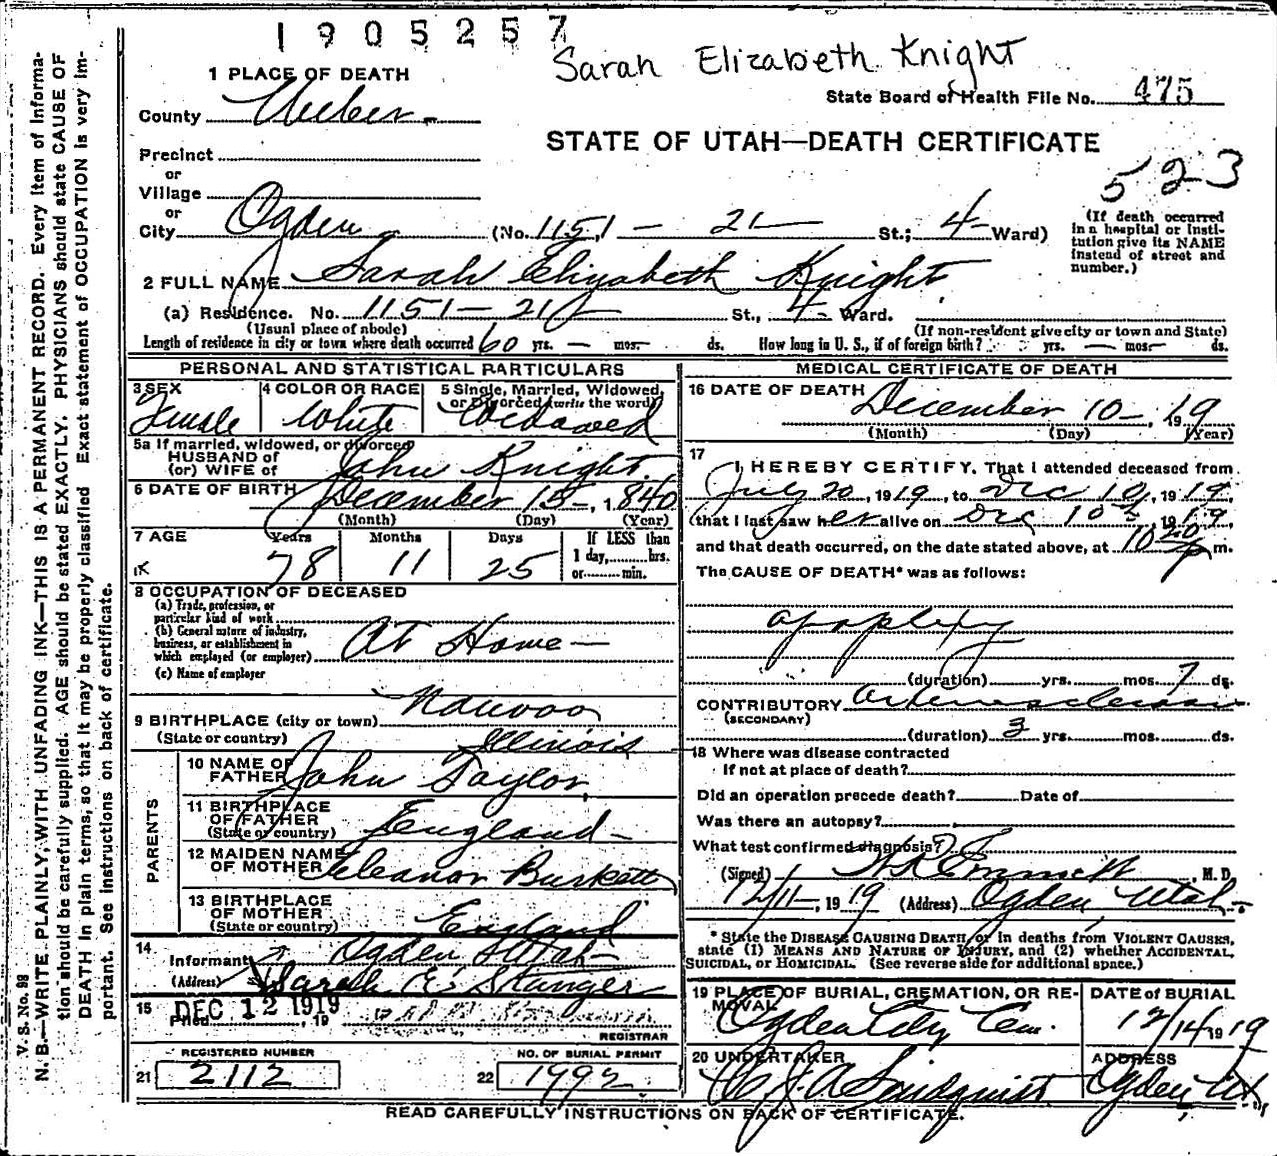 1905257
Sarah Elizabeth Knight
1 PLACE OF DEATH
State Board of Health File No. 475
County Weber
STATE OF UTAH—DEATH CERTIFICATE
Precinct
or
523
Village
or
City Ogden (No. 1151 — 21 — St.; 4 Ward)
(If death occurred in a hospital or institution give its NAME instead of street and number.)
2 FULL NAME Sarah Elizabeth Knight
(a) Residence. No. 1151 — 21 St., 4 Ward.
(Usual place of abode) (If non-resident give city or town and State)
Length of residence in city or town where death occurred 60 yrs. — mos. ds. How long in U. S., if of foreign birth? yrs. — mos. ds.
PERSONAL AND STATISTICAL PARTICULARS
3 SEX 4 COLOR OR RACE 5 Single, Married, Widowed, or Divorced (write the word)
Female White Widowed
5a If married, widowed, or divorced
HUSBAND of
(or) WIFE of John Knight
6 DATE OF BIRTH December 15, 1840
(Month) (Day) (Year)
7 AGE Years Months Days If LESS than
1 day, hrs.
78 11 25 or min.
8 OCCUPATION OF DECEASED
(a) Trade, profession, or
particular kind of work
(b) General nature of industry,
business, or establishment in
which employed (or employer) At Home —
(c) Name of employer
9 BIRTHPLACE (city or town) Nauvoo
(State or country) Illinois
PARENTS
10 NAME OF
FATHER John Taylor
11 BIRTHPLACE
OF FATHER
(State or country) England —
12 MAIDEN NAME
OF MOTHER Eleanor Burkett
13 BIRTHPLACE
OF MOTHER
(State or country) England
14
Informant Ogden Utah
(Address) Sarah E Stanger
15 Filed DEC 12 1919, 19
REGISTRAR
REGISTERED NUMBER NO. OF BURIAL PERMIT
21 2112 22 1992
MEDICAL CERTIFICATE OF DEATH
16 DATE OF DEATH December 10 —, 1919
(Month) (Day) (Year)
17
I HEREBY CERTIFY, That I attended deceased from
July 20, 1919, to Dec 10, 1919,
that I last saw her alive on Dec 10, 1919,
and that death occurred, on the date stated above, at 10 20 p m.
The CAUSE OF DEATH* was as follows:
apoplexy
(duration) yrs. mos. 7 ds.
CONTRIBUTORY Arteriosclerosis
(SECONDARY)
(duration) 3 yrs. mos. ds.
18 Where was disease contracted
If not at place of death?
Did an operation precede death? Date of
Was there an autopsy?
What test confirmed diagnosis?
(Signed) Emmett, M. D.
12/11, 1919 (Address) Ogden Utah
* State the DISEASE CAUSING DEATH, or in deaths from VIOLENT CAUSES,
state (1) MEANS AND NATURE OF INJURY, and (2) whether ACCIDENTAL,
SUICIDAL, or HOMICIDAL. (See reverse side for additional space.)
19 PLACE OF BURIAL, CREMATION, OR REMOVAL DATE of BURIAL
Ogden City Cem. 12/14/1919
20 UNDERTAKER ADDRESS
Lindquist Ogden Ut.
READ CAREFULLY INSTRUCTIONS ON BACK OF CERTIFICATE.
V. S. No. 98
N. B.—WRITE PLAINLY, WITH UNFADING INK—THIS IS A PERMANENT RECORD. Every item of informa-
tion should be carefully supplied. AGE should be stated EXACTLY. PHYSICIANS should state CAUSE OF
DEATH in plain terms, so that it may be properly classified Exact statement of OCCUPATION is very im-
portant. See instructions on back of certificate.